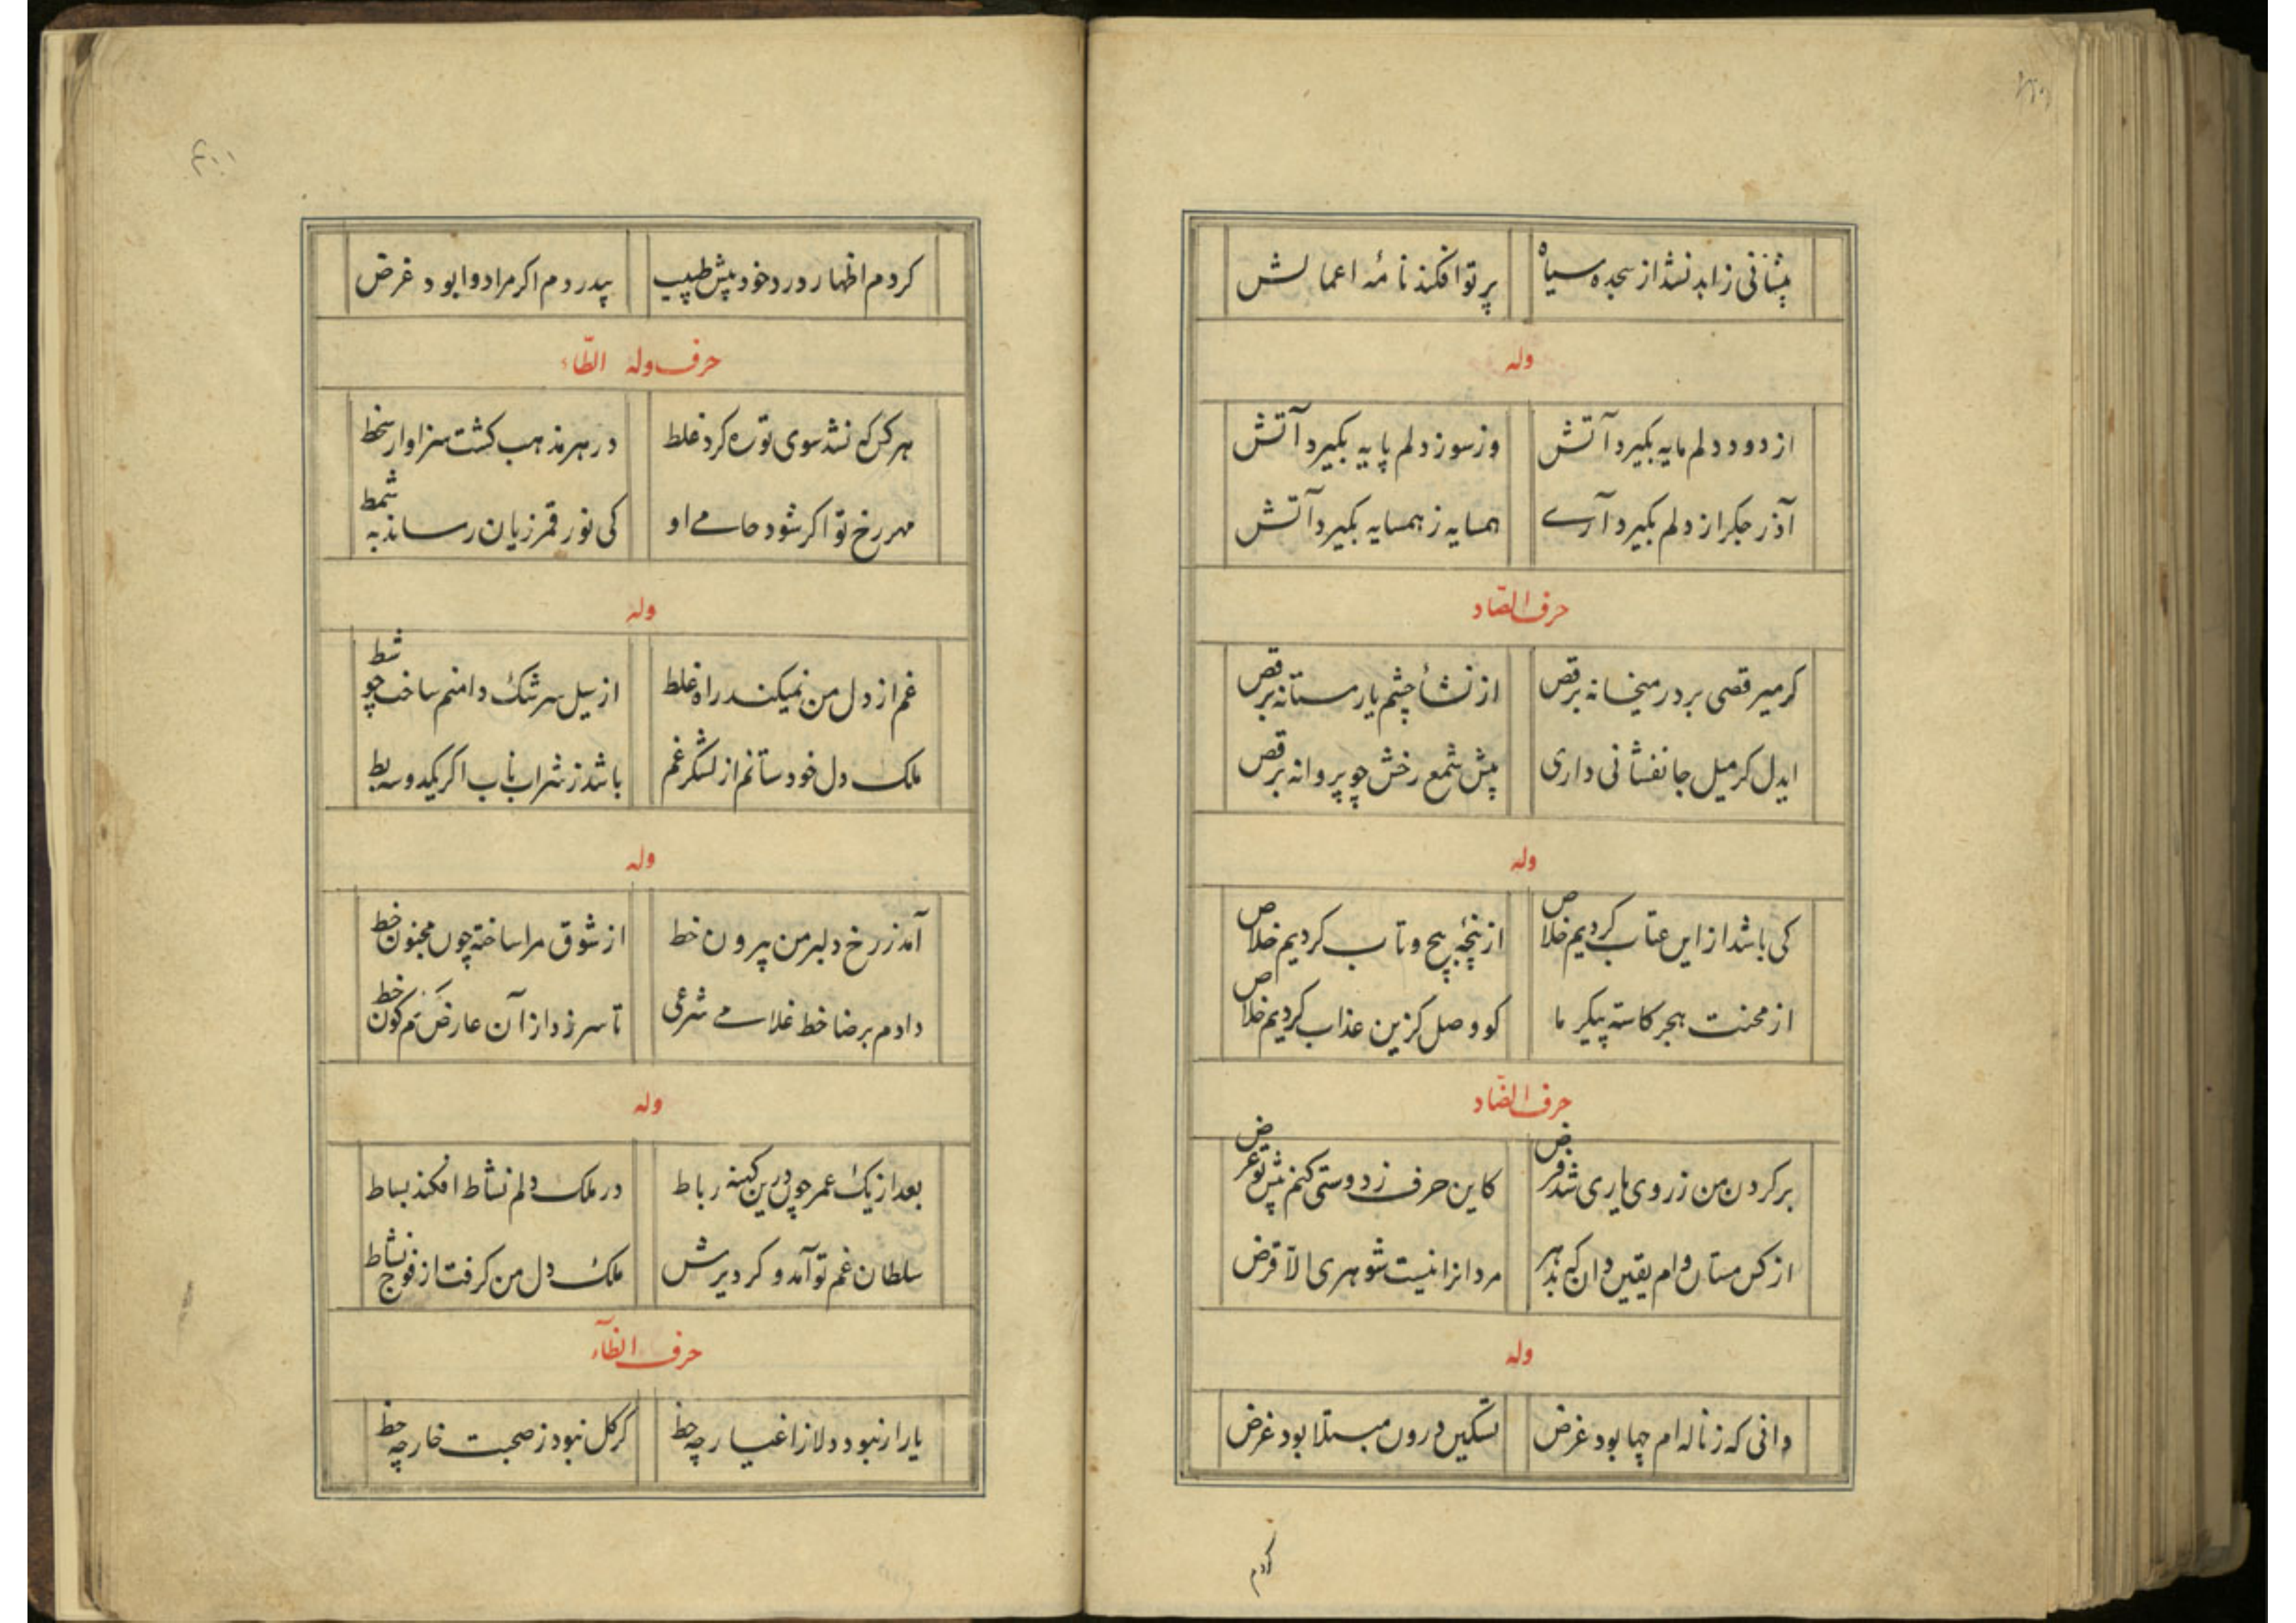 پیشانی زاهد نشد از سجده سیاه پرتو افکند نامۀ اعمالش
وله
از دود دلم مایه بگیرد آتش وز سوز دلم پایه بگیرد آتش
آذر جگر از دلم بگیرد آرے همسایه ز همسایه بگیرد آتش
حرف الصّاد
کر میرقصی بر در میخانه برقص از نشأ چشم یار مستانه برقص
ایدل کر میل جانفشانی داری پیش شمع رخش چو پروانه برقص
وله
کی باشد از این عتاب کردیم خلاص از پنچۀ پیچ و تاب کردیم خلاص
از محنت هجر کاسته پیکر ما کو وصل کزین عذاب کردیم خلاص
حرف الضّاد
بر کردن من ز روی یاری شد فرض کاین حرف ز دوستی کنم پیش تو عرض
از کس مستان وام یقین دان که بدهر مردانرا نیست شوهری الّا قرض
وله
دانی که ز ناله ام چها بود غرض تسکین درون مبتلا بود غرض
کردم
کردم اظهار درد خود پیش طبیب بیدردم اکر مرا دوا بود غرض
حرف وله الطّاء
هر کس که نشد سوی تو ره کرد غلط در هر مذهب کشت سزاوار سخط
مهر رخ تو اکر شود حامے او کی نور قمر زیان رساند به شمط
وله
غم از دل من نمیکند راه غلط از سیل سرشک دامنم ساخت چو شط
ملک دل خود ستانم از لشکر غم باشد ز شراب ناب اکر یکدو سه بط
وله
آمد ز رخ دلبر من بیرون خط از شوق مرا ساخته چون مجنون خط
دادم برضا خط غلامے شرعی تا سر زد از آن عارض کون خط
وله
بعد از یک عمر چون درین کهنه رباط در ملک دلم نشاط افکند بساط
سلطان غم تو آمد و کردیرش ملک دل من کرفت از فوج نشاط
حرف الظّاء
یار ار نبود دلا ز اغیار چه حظ گر گل نبود ز صحبت خار چه حظ